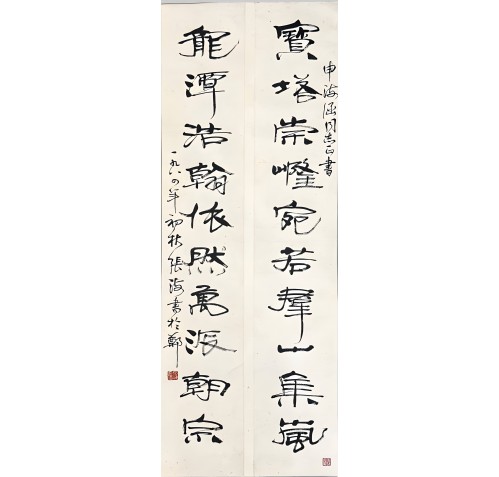 申海涵同志正書
寶塔崇嶐宛若羣山集嵐
龍潭浩翰依然萬派朝宗
一九八四年初秋張海書於鄭